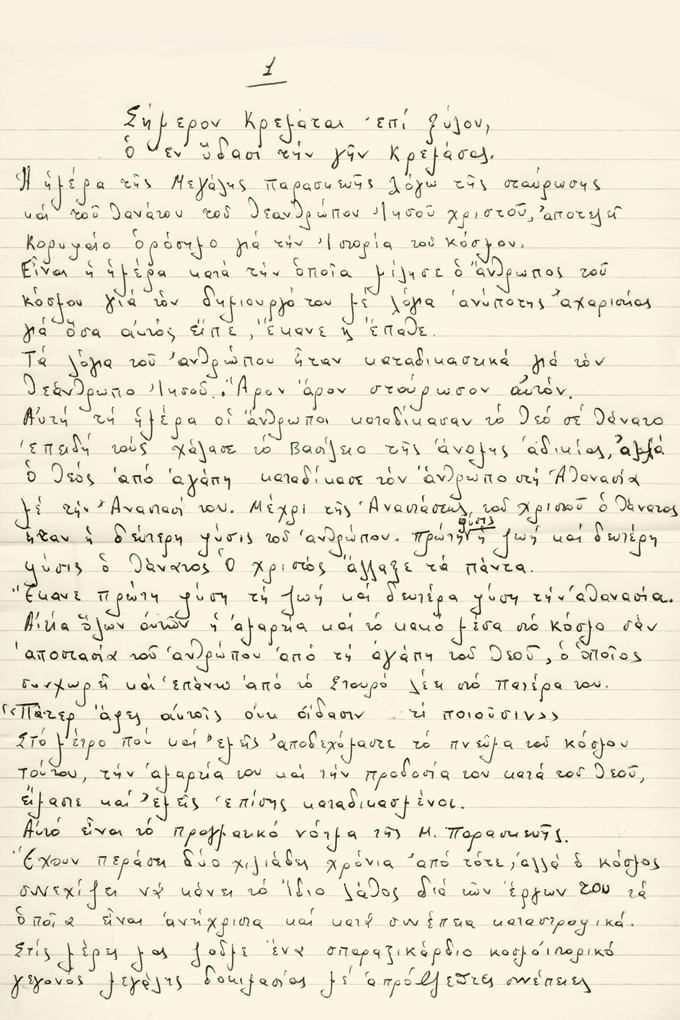 1
Σήμερον Κρεμάται ἐπί ξύλου,
ὁ ἐν ὕδασι τήν γῆν Κρεμάσας.
Ἡ ἡμέρα τῆς Μεγάλης Παρασκευῆς λόγω τῆς σταύρωσης
καί τοῦ θανάτου τοῦ Θεανθρώπου Ἰησοῦ χριστοῦ, ἀποτελεῖ
Κορυφαῖο ὁρόσημο γιά τήν Ἱστορία τοῦ κόσμου.
Εἶναι ἡ ἡμέρα κατά τήν ὁποῖα μίλησε ὁ ἄνθρωπος τοῦ
κόσμου γιά τόν δημιουργό του μέ λόγια ἀνύποτης ἀχαριστίας
γιά ὅσα αὐτός εἶπε, ἔκανε ἤ ἔπαθε.
Τά λόγια τοῦ ἀνθρώπου ἦταν καταδικαστικά γιά τόν
Θεάνθρωπο Ἰησοῦ. Ἄρον ἄρον σταύρωσον αὐτόν.
Αὐτή τή ἡμέρα οἱ ἄνθρωποι καταδίκασαν τό Θεό σέ θάνατο
ἐπειδή τούς χάλασε τό Βασίλειο τῆς ἄνομης ἀδικίας, ἀλλά
ὁ Θεός ἀπό ἀγάπη καταδίκασε τόν ἄνθρωπο στή Ἀθανασία
μέ τήν Ἀναστασί του. Μέχρι τῆς Ἀναστάσεως τοῦ χριστοῦ ὁ θάνατος
ἦταν ἡ δεύτερη φύσις τοῦ ἀνθρώπου. Πρώτη φύσις ἡ ζωή καί δευτέρη
φύσις ὁ θάνατος Ὁ χριστός ἄλλαξε τά πάντα.
Ἔκανε πρώτη φύση τή ζωή καί δευτέρα φύση τήν ἀθανασία.
Αἰτία ὅλων αὐτῶν ἡ ἁμαρτία καί τό κακό μέσα στό κόσμο σάν
ἀποστασία τοῦ ἀνθρώπου ἀπό τή ἀγάπη τοῦ Θεοῦ, ὁ ὁποῖος
συνχωρεῖ καί ἐπάνω ἀπό τό Σταυρό λέει στό Πατέρα του.
«Πάτερ ἄφες αὐτοῖς οὐκ οἴδασιν τί ποιοῦσιν»
Στό μέτρο πού καί ἐμεῖς ἀποδεχόμαστε τό πνεῦμα τοῦ κόσμου
τούτου, τήν ἁμαρτία του καί τήν προδοσία του κατά τοῦ Θεοῦ,
εἴμαστε καί ἐμεῖς ἐπίσης καταδικασμένοι.
Αὐτό εἶναι τό πραγματικό νόημα τῆς Μ. Παρασκευῆς.
Ἔχουν περάσει δύο χιλιάδες χρόνια ἀπό τότε, ἀλλά ὁ κόσμος
συνεχίζει νά κάνει τό ἴδιο λάθος διά τῶν ἔργων του τά
ὁποῖα εἶναι ἀντίχριστα καί κατά συνέπεια καταστροφικά.
Στίς μέρες μας ζοῦμε ἕνα σπαραξικάρδιο κοσμοϊστορικό
γεγονός μεγάλης δοκιμασίας μέ ἀπρόβλεπτες συνέπειες